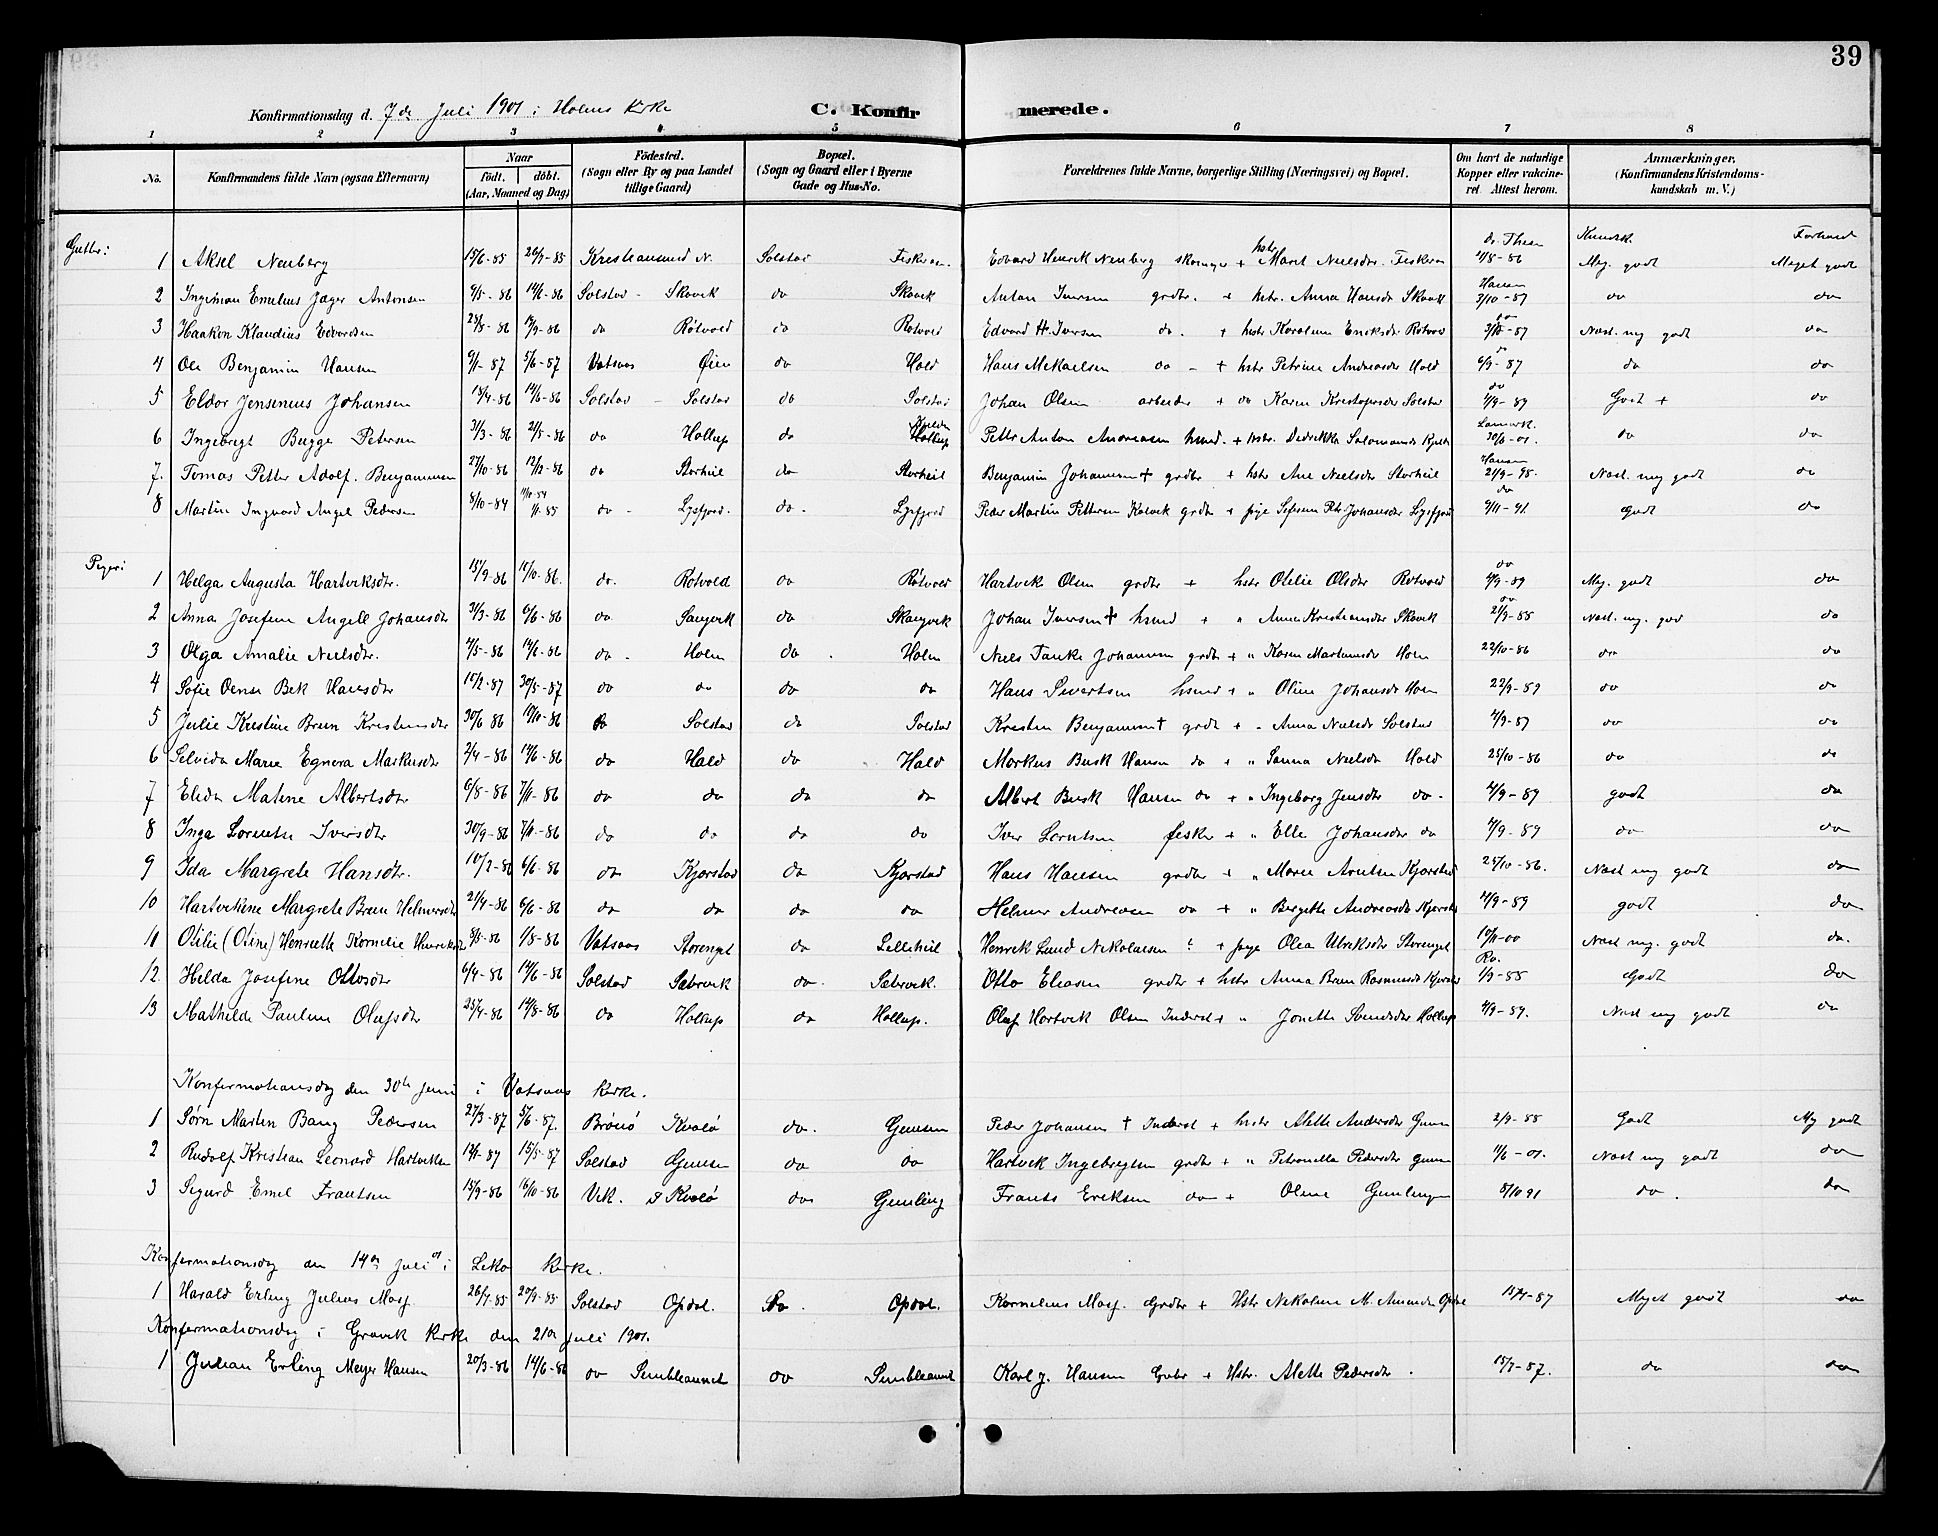 39
Konfirmationsdag d. 7de Juli 1901 i Holms Kirke C. Konfirmerede.
1 2 3 4 5 6 7 8
No. Konfirmandens fulde Navn (ogsaa Efternavn) Naar födt. döbt. (Aar, Maaned og Dag) Födested. (Sogn eller By og paa Landet tillige Gaard) Bopæl. (Sogn og Gaard eller i Byerne Gade og Hus-No. Forældrenes fulde Navne, borgerlige Stilling (Næringsvei) og Bopæl. Om havt de naturlige Kopper eller vakcineret. Attest herom. Anmærkninger. (Konfirmandens Kristendomskundskab m. V.)
Gutter: Kundsk. Forhold
1 Aksel Neuberg 15/6-85 26/9-85 Kristiansund N. Solstad Edvard Henrik Neuberg + hstr Marit Nielsdr. 11/8-86 Meg. godt Meget godt
2 Ingeman Emelius Jæger Antonsen 9/5-86 14/6-86 Solstad - Skavik do Skavik Anton Iversen grdbr. + hstr. Anna Hansdr Skavik Hansen 3/10-87 do do
3 Haakon Klaudius Edvardsen 25/8-86 19/9-86 do Rötvold do Rotvold Edvard H. Iversen do. + hstr Karoline Eriksdr Rotvold do Nast. mg godt do
4 Ole Benjamin Hansen 9/1-87 5/6-87 Vatsaas Øien do Hald Hans Mikaelsen do - + hstr Petrine Andreasdr Hald do 6/9-87 do do
5 Eldor Jensenius Johansen 18/4-86 14/6-86 Solstad - Solstad do Solstad Johan Olsen arbeider + do Karen Kristofersdr Solstad do 4/9-89 Godt + do
6 Ingebrigt Bugge Petersen 31/3-86 21/5-86 do Hollup do Hollup Petter Anton Andreasen hsmd. + hstr. Dedrikke Salomonsdr 30/6-01 do do
7. Tomas Petter Adolf. Benjaminsen 27/10-86 12/12-86 do Storheil do Storheil Benjamin Johansen + grdbr + hstr Ane Nielsdr Storheil Hansen 21/9-98. Nast. mg godt do
8 Martin Ingvard Angel Pedersen 8/10-84 11/10-84 do - Lysfjord. do - Lysfjord Peder Martin Pettersen Kalvik grdbr + pige Johansdr Lysfjord do 9/11-91 godt do
Piger:
1 Helga Augusta Hartviksdtr. 15/9-86 10/10-86. do. Rötvold do Rötvold Hartvik Olsen grdbr + hstr Otilie Olsdtr Rotvold do 4/9-89 Meg. godt do
2 Anna Josefine Angell Johansdtr 31/3-86 6/6-86 do do Skangvik Johan Iversen + hsmd + " Anna Kristiansdtr Skavik do 21/9-88 Nast. mg. god do
3 Olga Amalie Nielsdtr. 4/5-86 14/6-86 do - Holm do. Holm Niels Tanke Johansen grdbr + " Karen Martinsdr Holm 22/10-86 do do
4 Sofie Bek Hansdtr 10/2-87 30/5-87 do do do do Hans Sivertsen hsmd + " Oline Johansdr Holm 22/9-89 do do
5 Julie Kristine Brun Kristensdtr 30/6 86 10/10-86 do Solstad do Solstad Kristen Benjaminsen + grdbr + " Anna Nielsdr Solstad 4/9-89 do do
6 Selvida Marie Egnora Markusdtr 2/4-86 14/6-86 do Hald do Hald Markus Busk Hansen do + " Sanna Nielsdr Hald 25/10-86 do do
7 Elida Matene Albertsdtr 6/8-86 7/11-86 do do do do Albert Busk Hansen do + " Ingeborg Jensdtr do - 4/9-89 godt do
8 Inga Lorentse Iversdtr 30/9-86 7/11-86 do do do do Iver Lorntsen fisker + " Elle Johansdtr do 4/9-89 do do
9 Ida Margrete Hansdtr. 10/2-86 6/6-86 do Kjørstad do Kjørstad Hans Hansen grdbr + " Marie Arntsen Kjørstad 25/10-86. Nast mg godt do
10 Hartvikine Margrete Brun Helmersdtr 21/4-86 6/6-86 do do do do Helmer Andreasen do + " Bergitte Andreasdtr Kjørstad 4/9-89 godt do
11 Otilie (Otine) Henriette Kornelie Henriksdtr 8/5-86 1/8-86 Vatsaas Storenget do Lilleheil Henrik Lund Nikolaisen ? + pige Olea Ulriksdtr Storenget 10/11-00 Nast mg. godt do.
12. Hilda Josefine Ottosdtr 6/4-86 14/6-86 Solstad Sætervik do. Sætervik. Otto Eliasen grdbr + hstr Anna Brun Rasmusdr Kjørstad 1/9-88 Godt do
13 Mathilde Pauline Olufsdtr 25/4-86 14/8-86 do Hollup do Hollup. Oluf Hartvik Olsen Inderst + " Jonette Svendsdtr Hollup 4/9-89. Nast mg godt do
Konfirmationsdag den 30te juni i Vatsaas Kirke.
1 Sørn Martin Bang Pedersen 27/3-87 5/6-87. Brönö Kvalø do. Gimsen Peder Johansen + Inderst + hstr Alette Andersdtr 2/9-88 Godt Mg godt
2 Rudolf Kristian Leonard Hartviksen 15/5-87 Solstad Gimsen do do Hartvik Ingebrigtsen grdbr + " Petronella Pedersdtr 11/6-01. Nast mg godt do
3 Sigurd Emil Frantsen 18/9-86 16/10-86 Vik. S Kvalø do Gimling Frants Eriksen do + Oline Gimlingen 8/10 91 do. do
Konfirmationsdag den 14de Juli 01 i Leka Kirke.
1 Harald Erling Julius Mosj 26/7-85 20/9-85 Solstad Opdal. do. Opdal. Kornelius Mosj. Grdbr + Hstr Nikoline M. Opdal -87 Meget godt do
Konfirmationsdag i Gravik Kirke den 21de juli 1901.
1 Julian Erling Meyer Hansen 20/3-86 14/6-86 do do Karl J. Hansen Grdbr + Hstr. Alette Pedersdtr. 15/7-87. do do